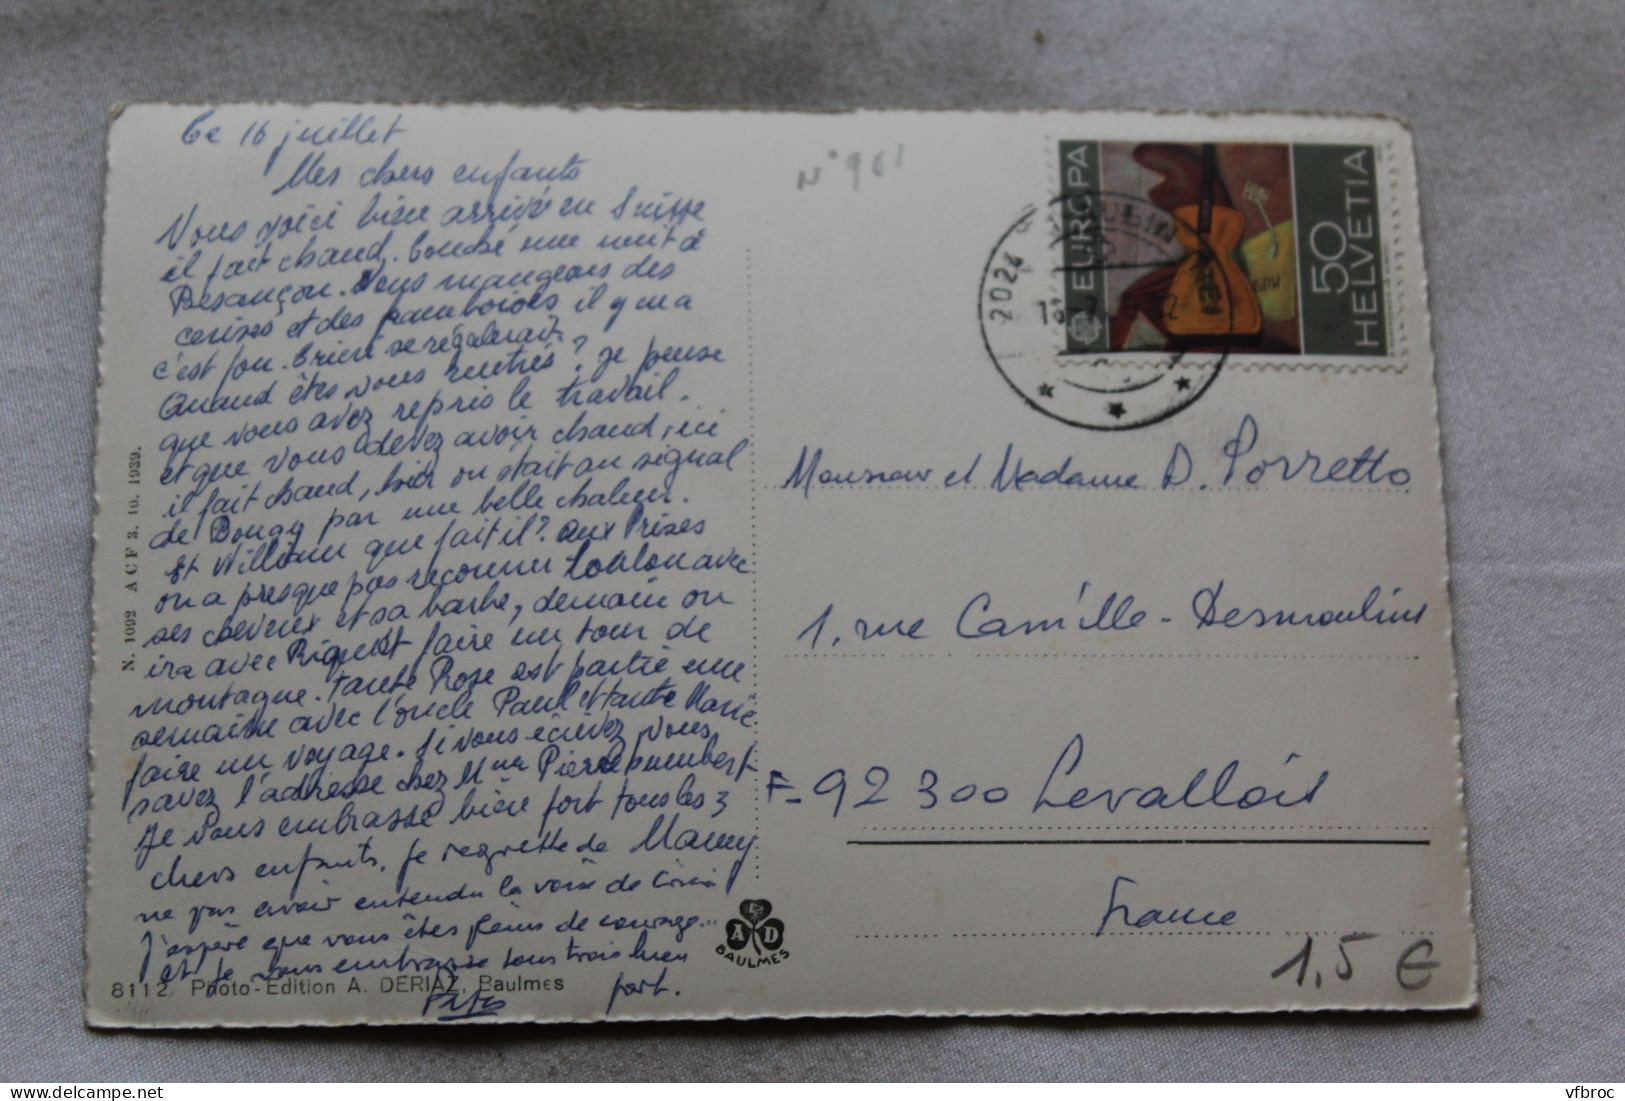 Ce 16 juillet
Mes chers enfants
Vous voici bien arrivé en Suisse
il fait chaud. couché une nuit à
Besançon. Nous mangeons des
cerises et des framboises il y en a
c'est fou. Brient se régalerait
Quand êtes vous rentrés ? Je pense
que vous avez repris le travail.
et que vous devez avoir chaud, ici
il fait chaud, hier on était au signal
de Bougy par une belle chaleur.
Et William que fait il ? aux Prises
on a presque pas reconnu Loulou avec
ses cheveux et sa barbe, demain on
ira avec Riquet faire un tour de
montagne. Tante Rose est partie une
semaine avec l'oncle Paul et tante Marie
faire un voyage. Si vous écrivez vous
savez l'adresse chez Mme Pierrehumbert
Je vous embrasse bien fort tous les 3
chers enfants, je regrette de Mamy
ne pas avoir entendu la voix de
J'espère que vous êtes pleins de courage...
et je vous embrasse tous trois bien
fort.
N. 1092 A C F 3. 10. 1939.
8112 Photo-Edition A. DERIAZ, Baulmes
A D
BAULMES
N° 961
EUROPA
50
HELVETIA
2024 ST-AUBIN
Monsieur et Madame D. Porretto
1, rue Camille-Desmoulins
F-92300 Levallois
France
1,5 €
vfbroc